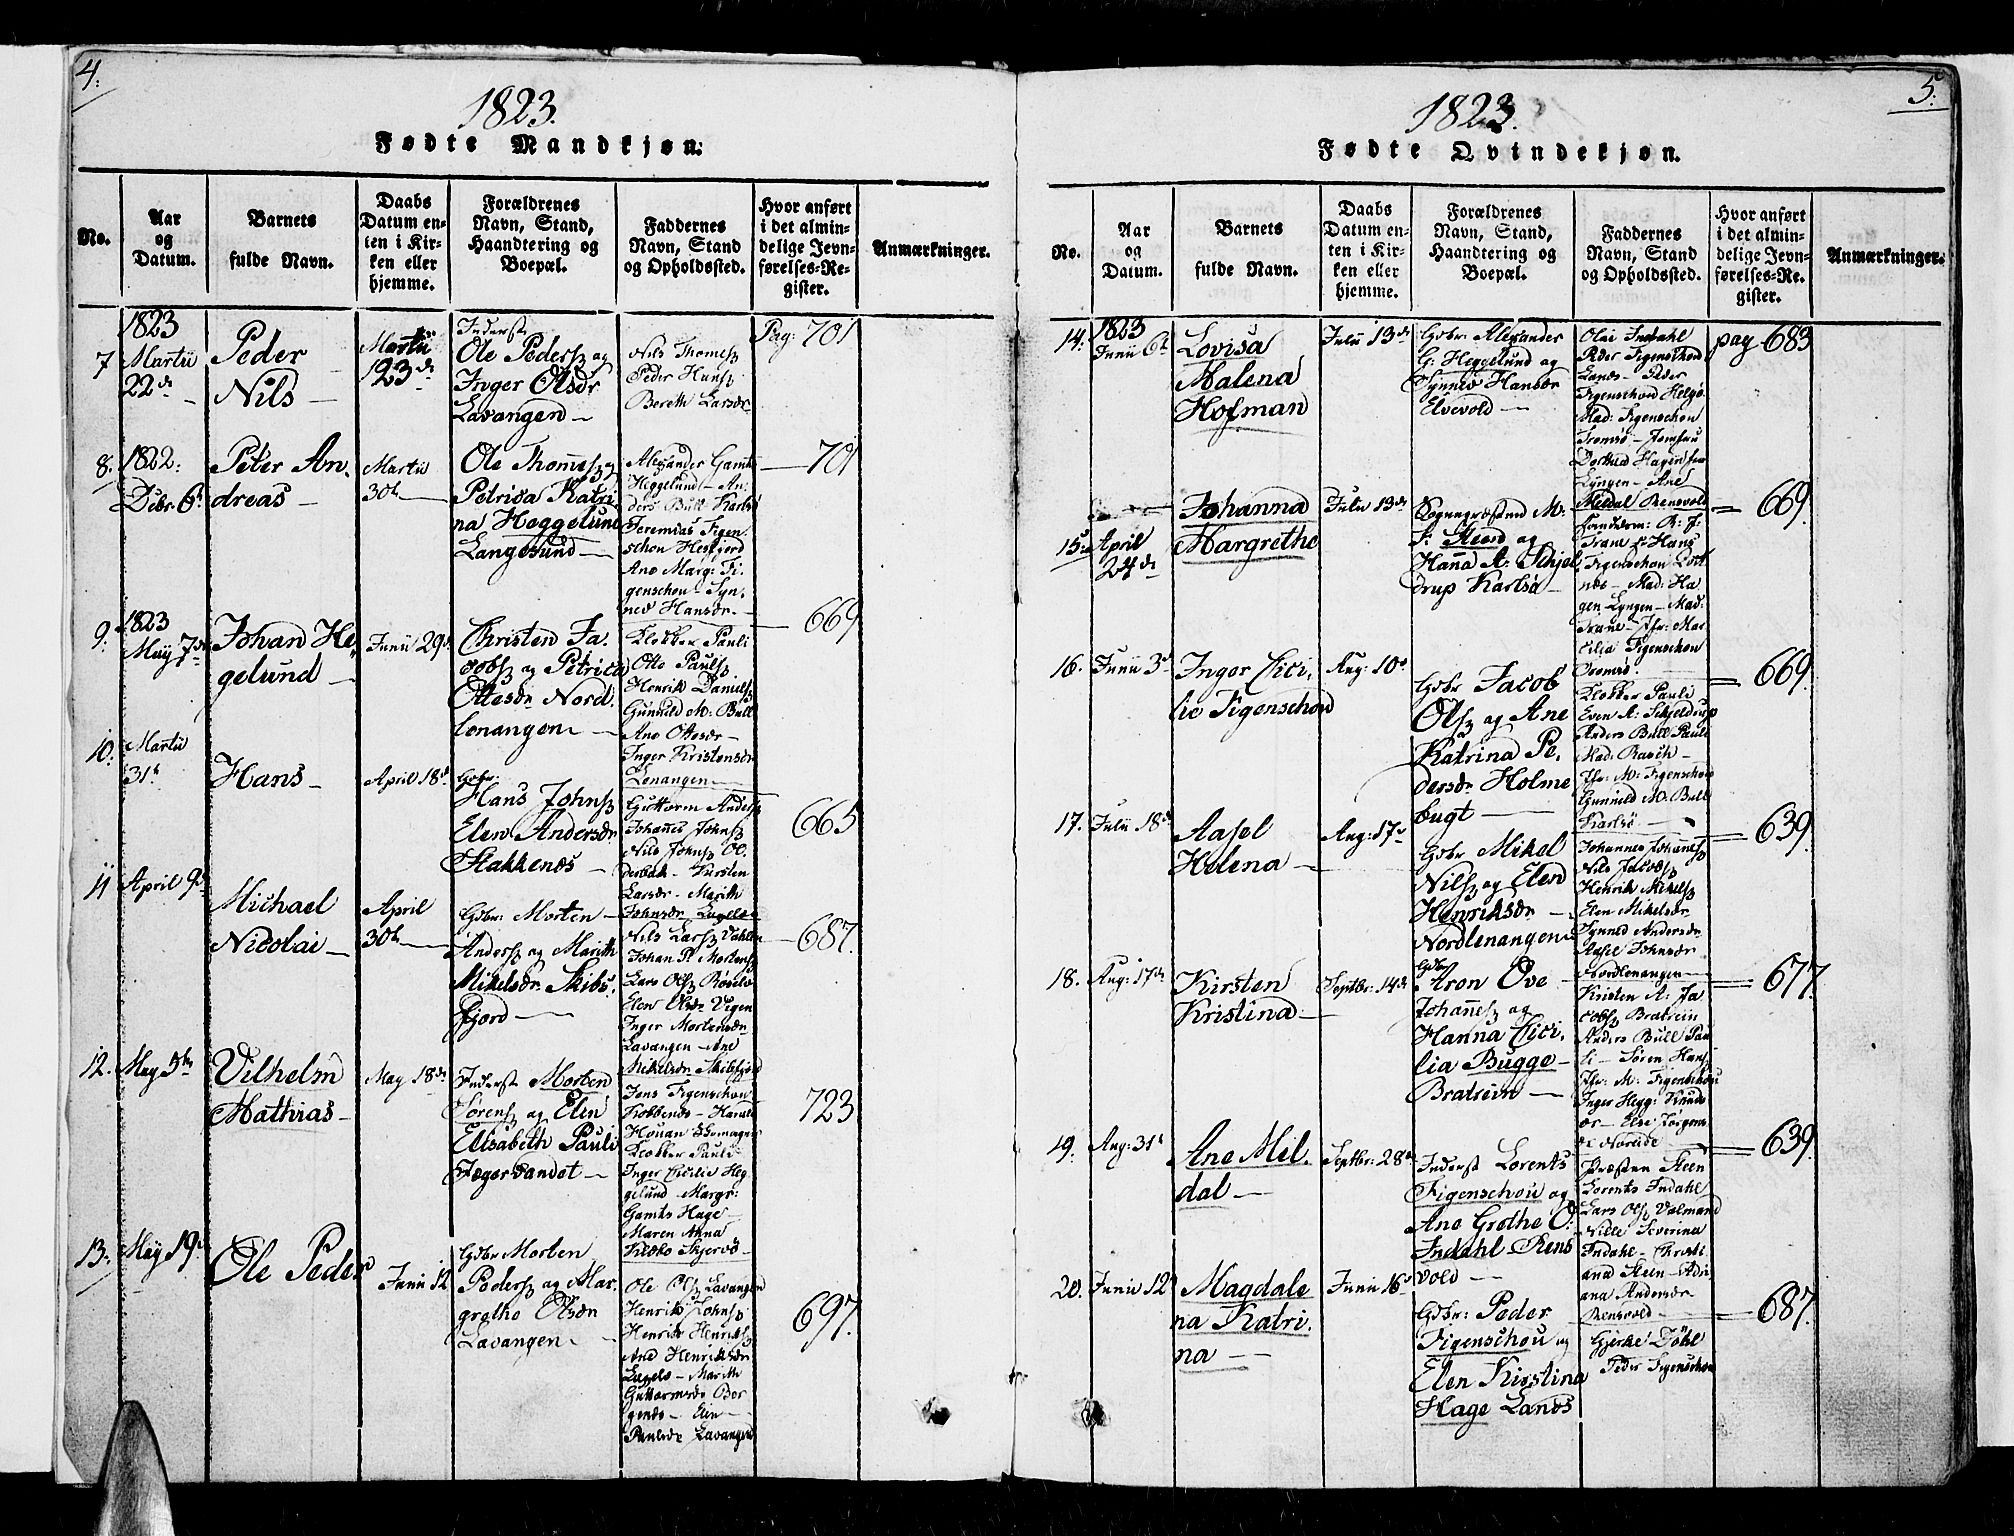 4.
1823.
Fødte Mandkjøn:
No.
Aar
og
Datum.
Barnets
fulde Navn.
Daabs
Datum en-
ten i Kir-
ken eller
hjemme.
Forældrenes
Navn, Stand,
Haandtering og
Boepæl.
Faddernes
Navn, Stand
og Opholdssted.
Hvor anført
i det almin-
delige Jevn-
førelses-Re-
gister.
Anmærkninger.
7
1823
Martii
22de
Peder
Nils
Martii
23de
Inderst
Ole Peders og
Inger Olsdr
Lavangen
Nils Thomes
Peder Hans
Bereth Larsdr
Pag: 701
8.
1822.
Decbr. 6te
Peter An,
dreas
Martii
30te
Ole Thomes og
Petrica Katri
na Heggelund
Langesund
Alexander Gamst
Heggelund - An,
ders Bull Karlsø
Jeremias Figen
schou Hesfjord
Ane Marg: Fi,
genschou - Syn,
nev Hansdr.
701
9.
1823
May 7de
Johan He,
gelund
Junii 29de
Christen Ja,
cobs og Petrica
Ottesdr Nord,
lenangen
Klokker Pauli
Otto Pauls
Henrik Daniels
Gunnild M: Bull
Ane Ottesdr
Inger Kristensdr
Lenangen
669
10.
Martii
31te
Hans
April 18de
Gdbr:
Hans Johns
Elen Andersdr
Stakkenes
Guttorm Anders
Johannes Johns
Nils Johns Ol
derbak - Kirsten
Larsdr - Marith
Johnsdr
665
11
April 9de
Michael
Nicolai
April
30te
Gdbr: Morten
Anders og Marith
Mikelsdr Skibs,
fjord
Nils Lars
Johan P. Mortens
Lars Ols
Elen Olsdr
Inger Mortensdr
Lavangen - Ane
Mikelsdr Skibsfjord
687.
12.
May 5te
Vilhelm
Mathias
May 18de
Inderst Morten
Sørens og Elen
Elisabeth Pauli
Jægervandet
Jens Figenschou
Klokker Pauli
Inger Cicilie Heg
gelund - Margr:
Gamts Hage
Maren Anna
Kilbo Skjervø
723
13.
May 19de
Ole Peder
Junii 12
Gdbr Morten
Peders og Mar,
grethe Olsdr
Lavangen
Ole Ols Lavangen
Henrik Johns
Henrik Henriks
Ane Henriksdr
- Marith
Guttormsdr
- Elen
Paulsdr Lavangen
697.
5.
1823.
Fødte Qvindekjøn.
No.
Aar
og
Datum.
Barnets
fulde Navn.
Daabs
Datum en-
ten i Kir-
ken eller
hjemme.
Forældrenes
Navn, Stand,
Haandtering og
Boepæl.
Faddernes
Navn, Stand
og Opholdssted.
Hvor anført
i det almin-
delige Jevn-
førelses-Re-
gister.
Anmærkninger.
14.
1823
Junii 6te
Lovisa
Malena
Hofman
Julii 13de
Gdbr. Alexander
G: Heggelund og
Synnev Hansdr
Elvevold
Olai Indahl
Peder Figenschou
Lanes - Peder
Figenschou Helgø
Mad: Figenschou
Tromsø - Jomfru
Dorthea Hagen
Lyngen - Ane
Meldal Rensvold
pag 683
15.
April
24de
Johanna
Margrethe
Julii 13de
Sognepræsten M.
Steen og
Hana A: Schjel,
drup Karlsø
Figenschou
nes - Mad: Ha
gen Lyngen - Mad:
- Jfr: Mar
cilia Figenschou
Tromsø
669.
16.
Junii 3de
Inger Cici,
lie Figenschou
Aug: 10de
Gdbr Jacob
Ols og Ane
Katrina Pe,
dersdr Holme
bugt
Klokker Pauli
Even A: Schjeldrup
Anders Bull Pauli
Mad: Rasch
Jfr: M: Figenschou
Gunnild M. Bull
Karlsø
669.
17.
Julii 18de
Aasel
Helena
Aug: 17de
Gdbr Mikel
Nils og Elen
Henriksdr
Nordlenangen
Johannes Johannes
Nils Jacobs
Henrik Mikels
Elen Mikelsdr
Synnev Andersdr
Aasel Johnsdr
Nordlenangen
639.
18.
Aug: 17de
Kirsten
Kristina
Septbr: 14de
Gdbr
Aron Ove
Johannes og
Hanna Cici,
lia Bugge
Bratrein
Kristen A: Ja
cobs Bratrein
Anders Bull Pau
li - Søren Hans
Jfr: M: Figenschou
Inger Hegg: Knuds
dr - Else Jørgens
dr
677.
19.
Aug: 31te
Ane Mel,
dal
Septbr: 28de
Inderst Lorents
Figenschou og
Ane Grethe C:
Indahl Rens
vold
Præsten Steen
Lorents Indahl
Lars Ols Valmand
Nille Severina
Indahl - Christi
ana Steen - Adri
ana Andersdr
Rensvold
639.
20.
Junii 12
Magdale
na Katri,
na
Junii 16de
Gdbr: Peder
Figenschou og
Elen Kirstina
Hage Lanes
Gjerke Døhl
Peder Figenschou
687.